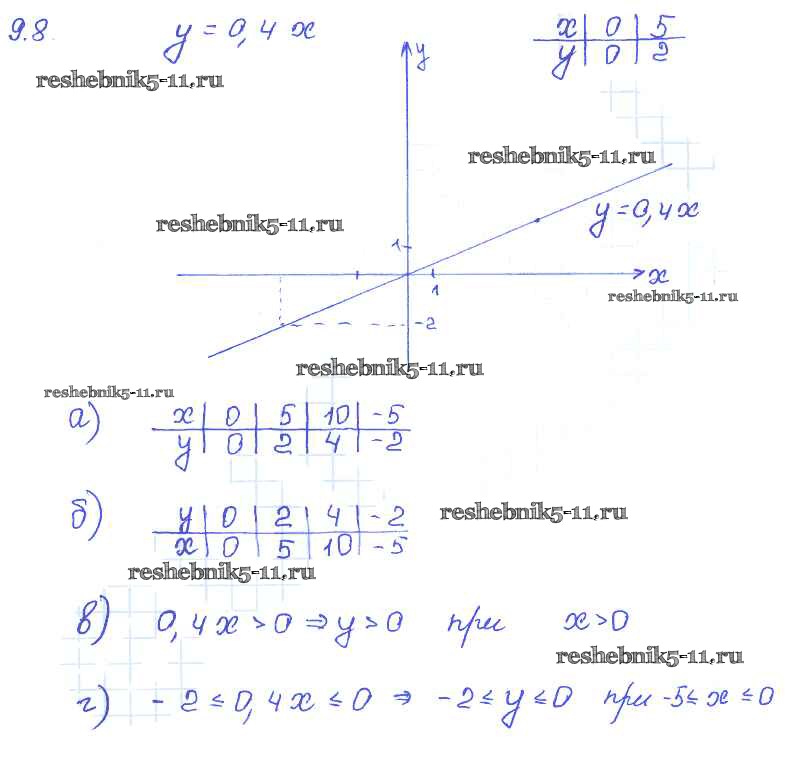 9.8. y = 0,4 x
x 0 5
y 0 2
reshebnik5-11.ru
y
reshebnik5-11.ru
y = 0,4 x
reshebnik5-11.ru
1
x
1
reshebnik5-11.ru
-2
reshebnik5-11.ru
reshebnik5-11.ru
а) x 0 5 10 -5
y 0 2 4 -2
б) y 0 2 4 -2
x 0 5 10 -5
reshebnik5-11.ru
reshebnik5-11.ru
в) 0,4x > 0 ⇒ y > 0 при x > 0
reshebnik5-11.ru
г) - 2 ≤ 0,4x ≤ 0 ⇒ -2 ≤ y ≤ 0 при -5 ≤ x ≤ 0